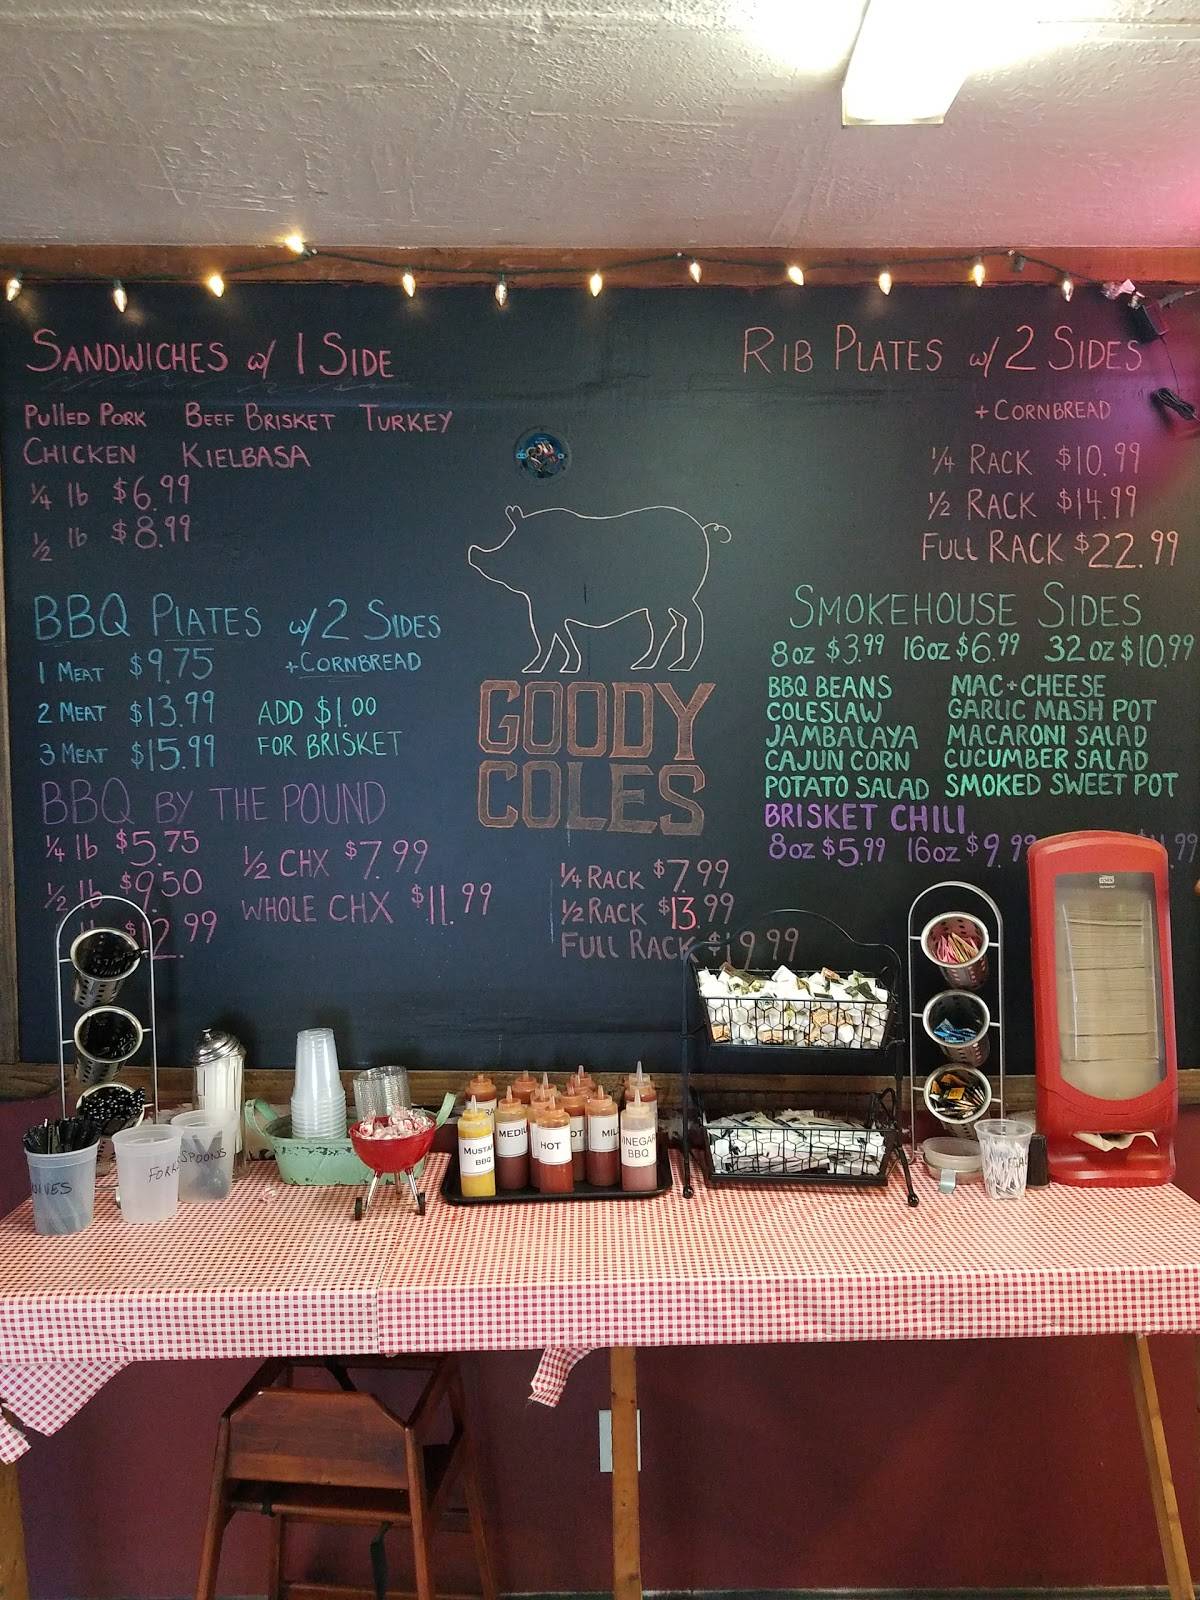 SANDWICHES w/ 1 SIDE
PUllED PORK BEEF BRISKET TURKEY
CHICKEN KIELBASA
1/4 lb $6.99
1/2 lb $8.99
BBQ PLATES w/ 2 SIDES
+ CORNBREAD
1 MEAT $9.75
2 MEAT $13.99
3 MEAT $15.99
ADD $1.00
FOR BRISKET
BBQ BY THE POUND
1/4 lb $5.75
1/2 lb $9.50
$12.99
1/2 CHX $7.99
WHOLE CHX $11.99
1/4 RACK $7.99
1/2 RACK $13.99
FULL RACK $19.99
GOODY
COLES
RIB PLATES w/ 2 SIDES
+ CORNBREAD
1/4 RACK $10.99
1/2 RACK $14.99
FUll RACK $22.99
SMOKEHOUSE SIDES
8oz $3.99 16oz $6.99 32oz $10.99
BBQ BEANS MAC+CHEESE
COLESLAW GARLIC MASH POT
JAMBALAYA MACARONI SALAD
CAJUN CORN CUCUMBER SALAD
POTATO SALAD SMOKED SWEET POT
BRISKET CHILI
8oz $5.99 16oz $9.99
SPOONS
MUSTARD
BBQ
HOT
VINEGAR
BBQ